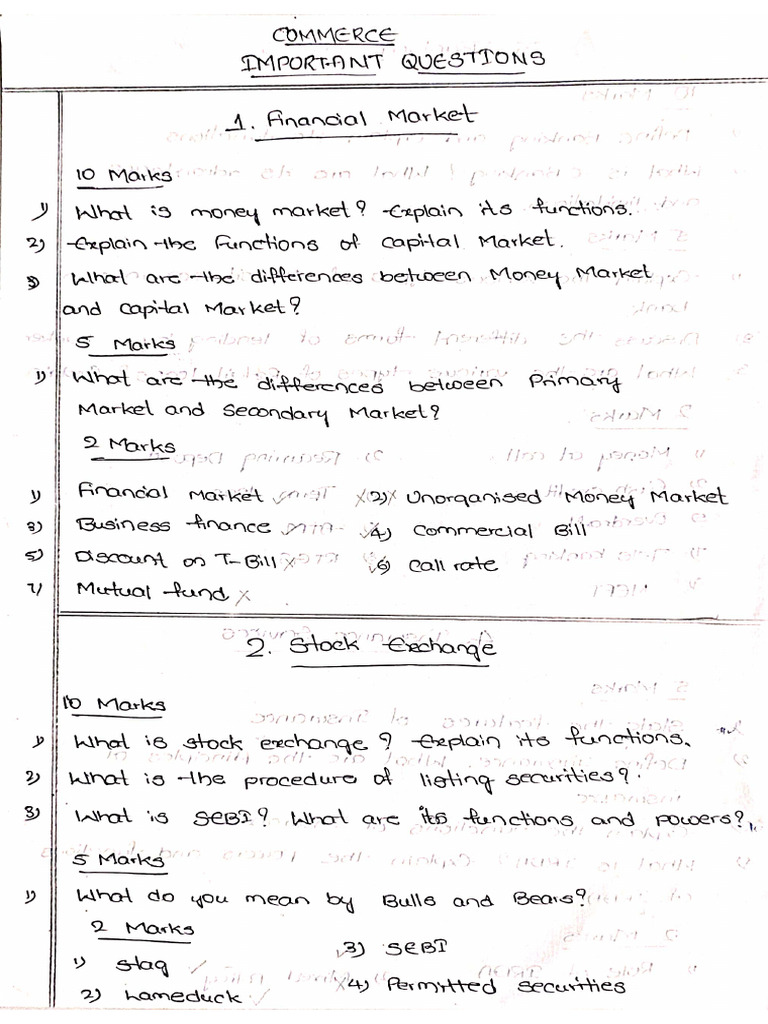 COMMERCE
IMPORTANT QUESTIONS
1. Financial Market
10 Marks
1) What is money market? Explain its functions.
2) Explain the Functions of Capital Market.
3) What are the differences between Money Market
and Capital Market?
5 Marks
1) What are the differences between Primary
Market and Secondary Market?
2 Marks
1) Financial Market 2) Unorganised Money Market
3) Business finance 4) Commercial Bill
5) Discount on T-Bill 6) Call rate
7) Mutual fund
2. Stock Exchange
10 Marks
1) What is stock exchange? Explain its functions.
2) What is the procedure of listing securities?
3) What is SEBI? What are its functions and powers?
5 Marks
1) What do you mean by Bulls and Bears?
2 Marks
1) Stag 3) SEBI
2) Lameduck 4) Permitted securities